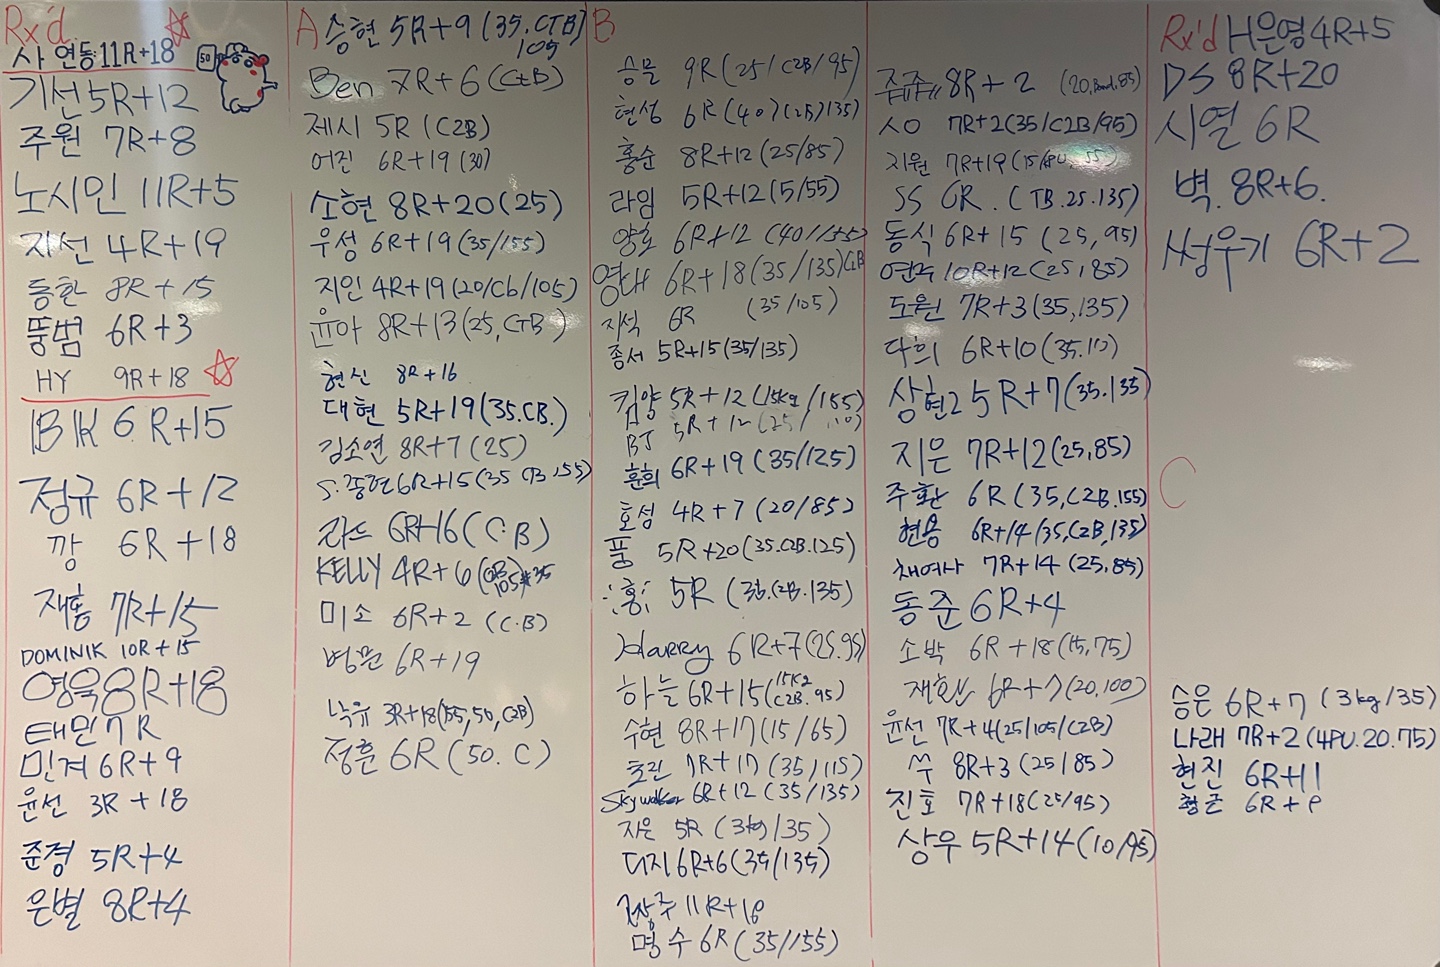 Rx'd
사 연동 11R+18
50
기선 5R+12
주원 7R+8
노시인 11R+5
지선 4R+19
동환 8R+15
뚱범 6R+3
HY 9R+18
BK 6R+15
정규 6R+12
깡 6R+18
재홍 7R+15
DOMINIK 10R+15
영욱 8R+18
태민 7R
민겨 6R+9
윤선 3R+18
준경 5R+4
은별 8R+4
A
승현 5R+9 (35.CTB)
105
Ben 7R+6 (CtB)
제시 5R (C2B)
어진 6R+19 (30)
소현 8R+20 (25)
우성 6R+19 (35/155)
지인 4R+19 (20/Cb/105)
윤아 8R+13 (25, CTB)
현신 8R+16
대현 5R+19 (35.CB.)
김소연 8R+7 (25)
6R+15 (35 155)
라스 6R+16 (C.B)
KELLY 4R+6 (CB) 105 #35
미소 6R+2 (C.B)
병문 6R+19
낙유 3R+18 (155, 50, C2B)
정훈 6R (50. C)
B
승문 9R (25/C2B/95)
현성 6R (40)(2B)135)
홍순 8R+12 (25/85)
라임 5R+12 (5/55)
양호 6R+12 (40/155)
영태 6R+18 (35/135) CtB
지석 6R (35/105)
종서 5R+15 (35/135)
킴양 5R+12 (15kg/185)
BJ 5R+12 (25/
훈희 6R+19 (35/125)
호성 4R+7 (20/85)
풍 5R+20 (35.C2B.125)
:홍: 5R (35.C2B.135)
Harry 6R+7 (25.95)
하늘 6R+15 (15kg C2B.95)
수현 8R+17 (15/65)
7R+17 (35/115)
Skywalker 6R+12 (35/135)
지은 5R (3kg/35)
디지 6R+6 (35/135)
11R+18
명수 6R (35/155)
쥬쥬 8R+2 (20, Band, 85)
ㅅㅇ 7R+2 (35/C2B/95)
지원 7R+19 (15/
SS 6R. (TB.25.135)
동식 6R+15 (25, 95)
연주 10R+12 (25, 85)
도원 7R+3 (35, 135)
다희 6R+10 (35.
상현2 5R+7 (35.135)
지은 7R+12 (25, 85)
주환 6R (35, C2B.155)
현용 6R+14 (35, C2B, 135)
채여사 7R+14 (25.85)
동준 6R+4
소박 6R+18 (15, 75)
재환 6R+7 (20, 100)
윤선 7R+4 (25/105/C2B)
쑤 8R+3 (25/85)
진호 7R+18 (25/95)
상우 5R+14 (10/95)
Rx'd H은영 4R+5
DS 8R+20
시열 6R
벽. 8R+6.
써우기 6R+2
C
승은 6R+7 (3kg/35)
나래 7R+2 (4PU.20.75)
현진 6R+11
형근 6R+9